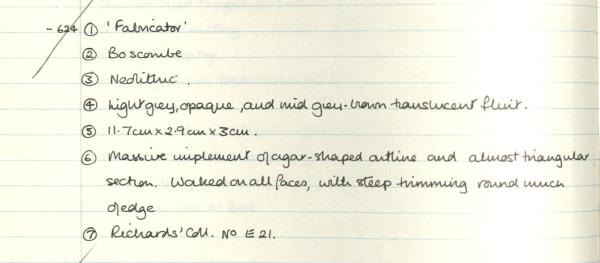 - 624 ① 'Fabricator'
② Boscombe
③ Neolithic.
④ Light grey, opaque, and mid grey-brown translucent flint.
⑤ 11.7cm x 2.9cm x 3cm.
⑥ Massive implement of cigar-shaped outline and almost triangular
section. Worked on all faces, with steep trimming round much
of edge
⑦ Richards' Coll. No E 21.